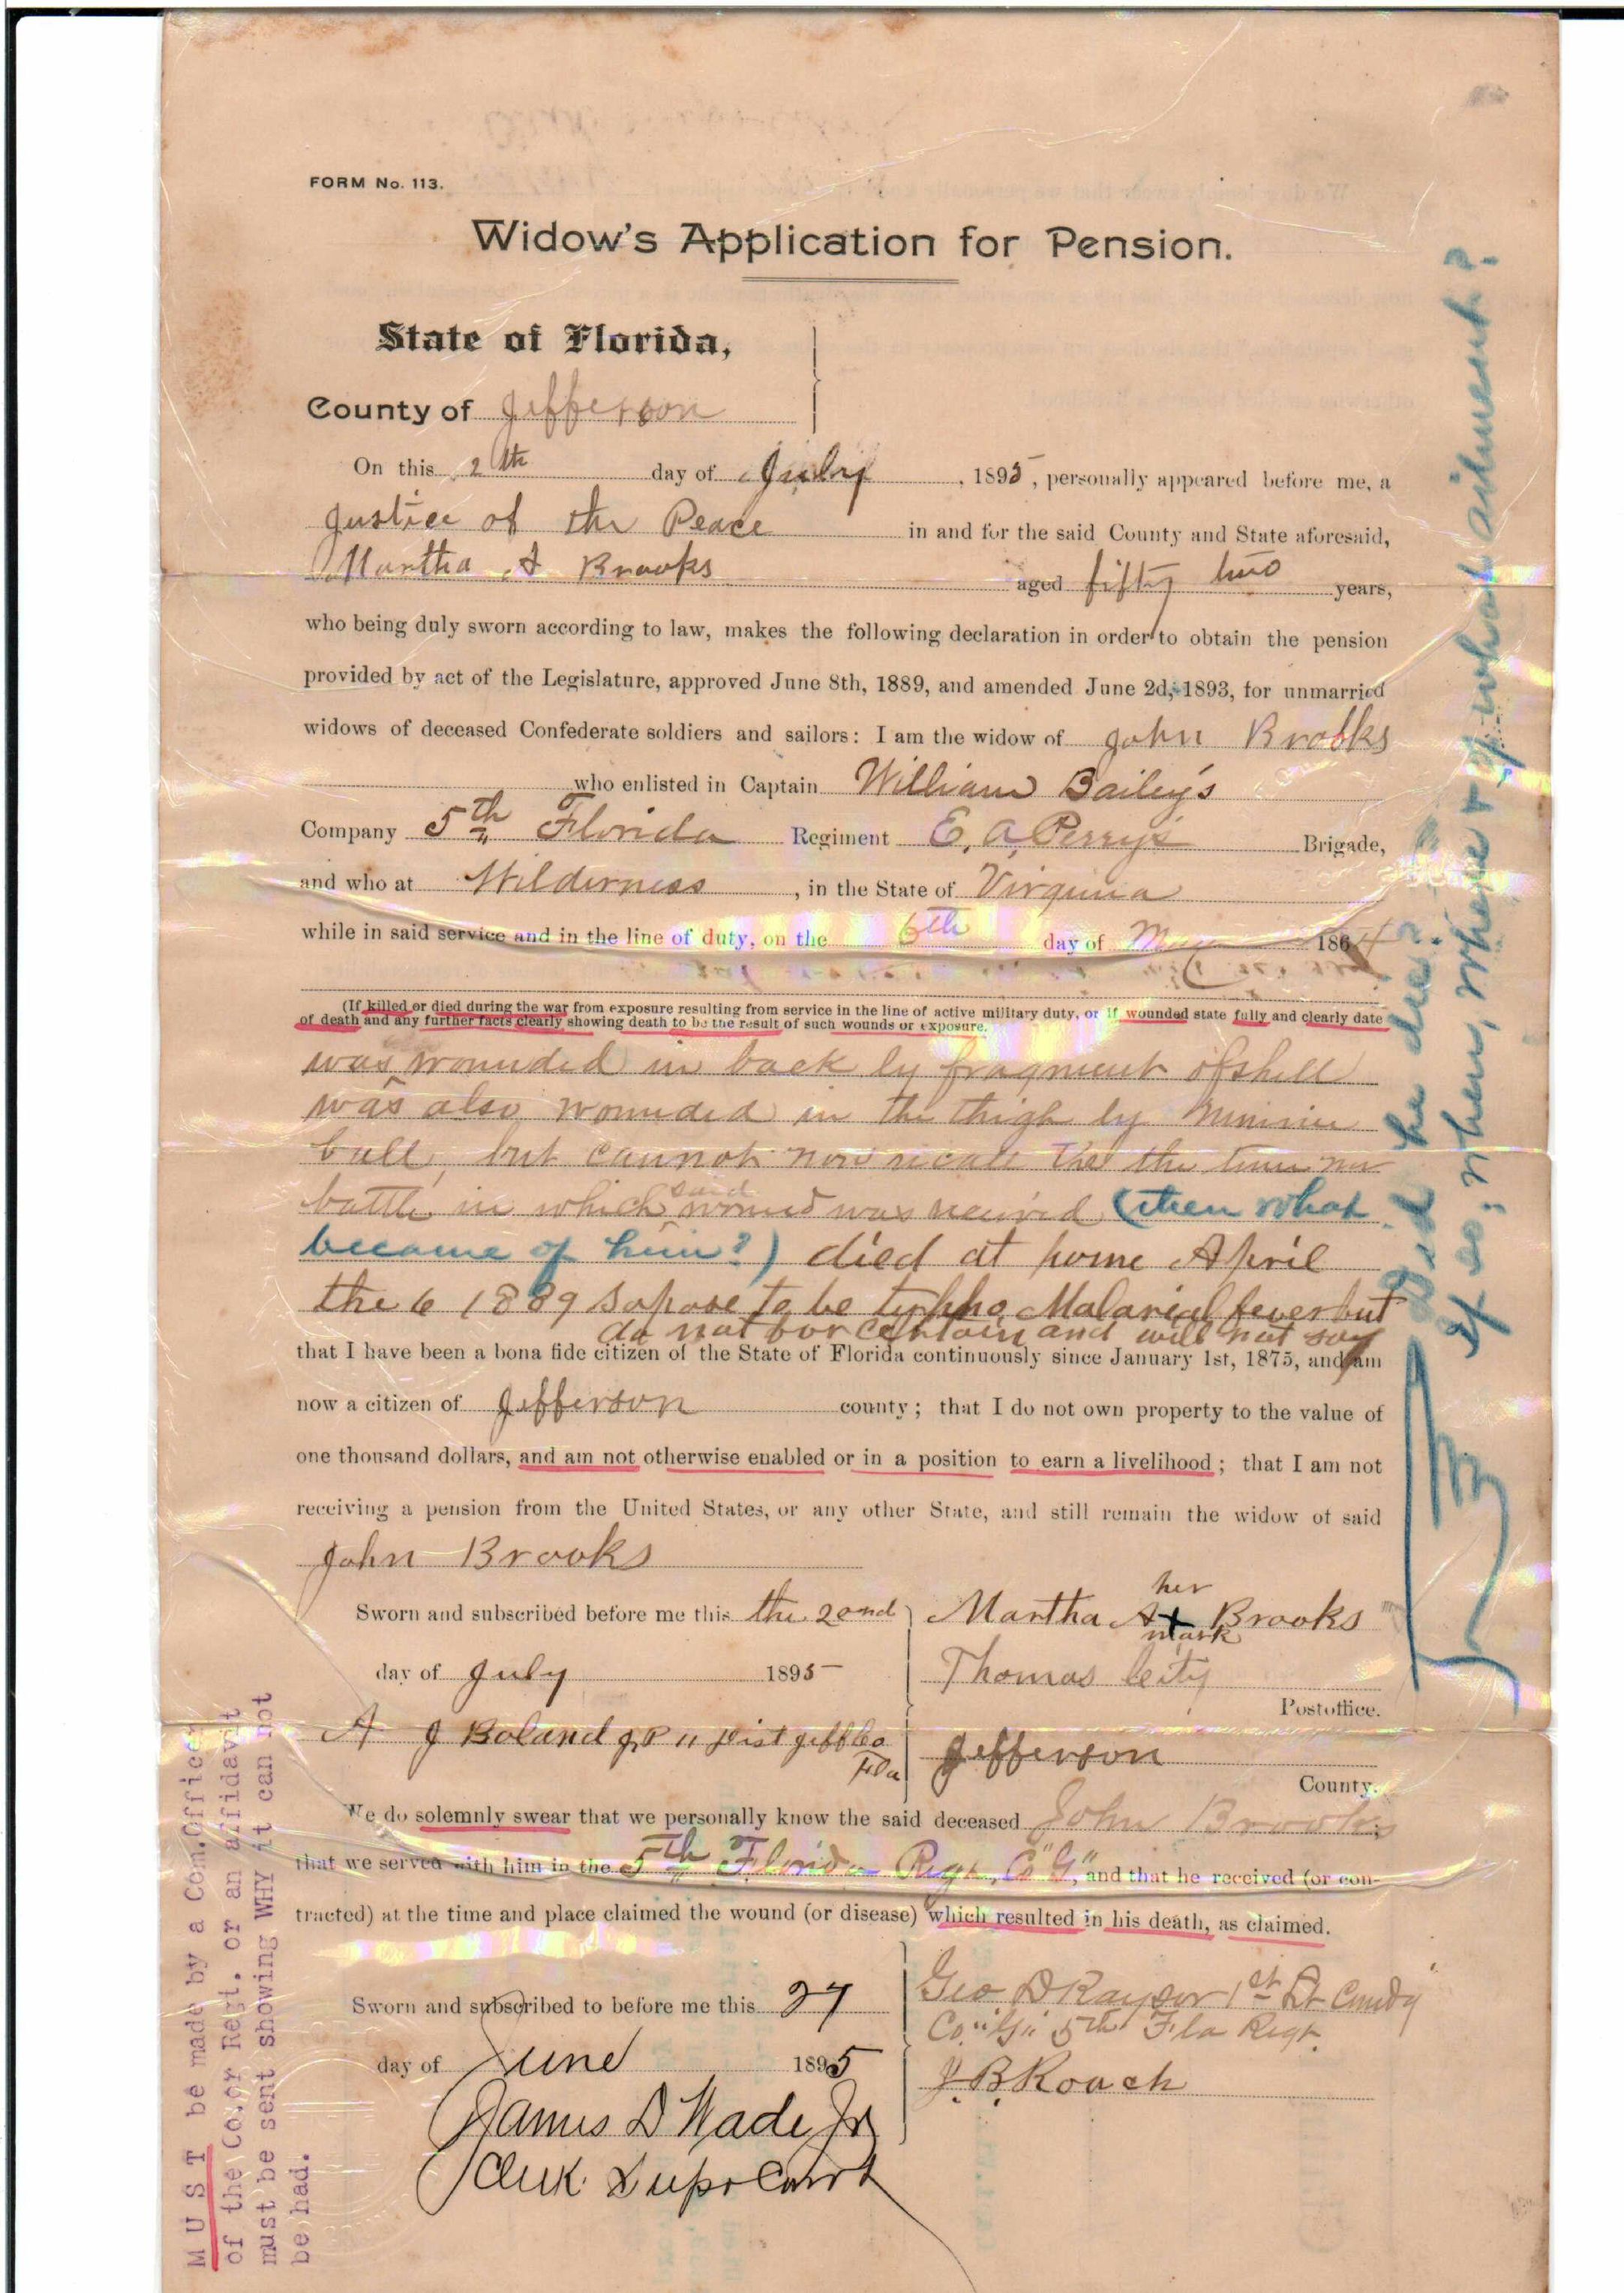 FORM No. 113.
Widow's Application for Pension.
State of Florida,
County of Jefferson
On this 2th day of July, 1895, personally appeared before me, a
Justice of the Peace in and for the said County and State aforesaid,
Martha A Brooks aged fifty two years,
who being duly sworn according to law, makes the following declaration in order to obtain the pension
provided by act of the Legislature, approved June 8th, 1889, and amended June 2d, 1893, for unmarried
widows of deceased Confederate soldiers and sailors: I am the widow of John Brooks
who enlisted in Captain William Bailey's
Company 5th Florida Regiment E, A, Perry's Brigade,
and who at Wilderness, in the State of Virginia
while in said service and in the line of duty, on the 6th day of May 1864
(If killed or died during the war from exposure resulting from service in the line of active military duty, or if wounded state fully and clearly date
of death and any further facts clearly showing death to be the result of such wounds or exposure.
was wounded in back by fragment of shell
was also wounded in the thigh by minnie
ball, but cannot now recall the the time nor
battle in which said wound was received (then what
became of him?) died at home April
the 6 1889 Sopose to be typho Malarial fever but
do not for certain and will not say
that I have been a bona fide citizen of the State of Florida continuously since January 1st, 1875, and am
now a citizen of Jefferson county; that I do not own property to the value of
one thousand dollars, and am not otherwise enabled or in a position to earn a livelihood; that I am not
receiving a pension from the United States, or any other State, and still remain the widow of said
John Brooks
Sworn and subscribed before me this the 2ond
day of July 1895
A J Boland J P 11 Dist Jeff Co
Fla
her
Martha A x Brooks
mark
Thomas City
Postoffice.
Jefferson
County.
We do solemnly swear that we personally knew the said deceased John Brooks
that we served with him in the 5th Florida Regt, Co "G", and that he received (or con-
tracted) at the time and place claimed the wound (or disease) which resulted in his death, as claimed.
Sworn and subscribed to before me this 27
day of June 1895
James D Wade Jr
Clerk Supr Court
Geo D Raysor 1st Lt Comdg
Co. "G" 5th Fla Regt.
J. B. Roach
Did he die?
If so; when, where & of what ailment?
MUST be made by a Com. Officer
of the Co. or Regt. or an affidavit
must be sent showing WHY it can not
be had.